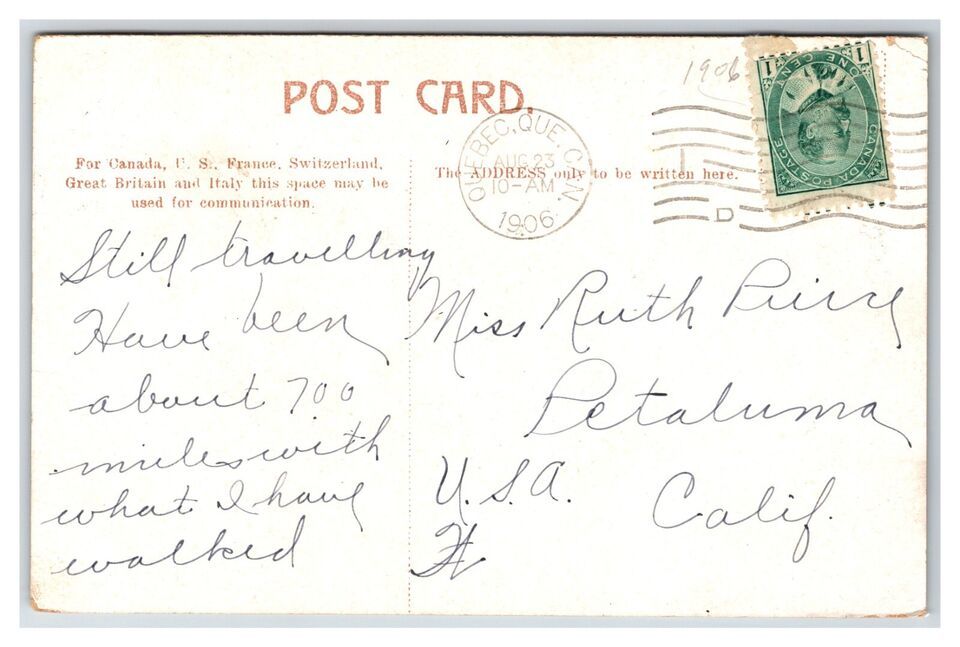 POST CARD.
1906
For Canada, U. S., France, Switzerland,
Great Britain and Italy this space may be
used for communication.
The ADDRESS only to be written here.
QUEBEC, QUE. CAN.
AUG 23
10-AM
1906
D
1 ONE CENT 1
CANADA POSTAGE
Still travelling
Have been
about 700
miles with
what I have
walked
Miss Ruth
Petaluma
U.S.A.
Calif.